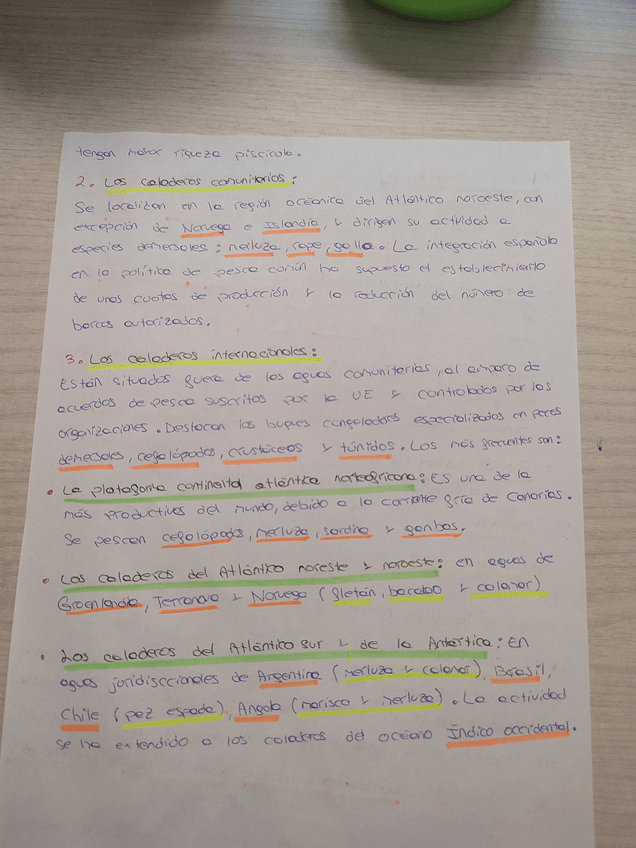 tengan menor riqueza piscícola.
2. Los caladeros comunitarios:
Se localizan en la región oceánica del Atlántico noroeste, con
excepción de Noruega e Islandia, y dirigen su actividad a
especies demersales: merluza, rape, gallo. La integración española
en la política de pesca común ha supuesto el establecimiento
de unas cuotas de producción y la reducción del número de
barcos autorizados.
3. Los caladeros internacionales:
Están situados fuera de las aguas comunitarias, al amparo de
acuerdos de pesca suscritos por la UE y controlados por las
organizaciones. Destacan los buques congeladores especializados en peces
demersales, cefalópodos, crustáceos y túnidos. Los más frecuentes son:
• La plataforma continental atlántica norteafricana: Es una de la
más productivas del mundo, debido a la corriente fría de Canarias.
Se pescan cefalópodos, merluza, sardina y gambas.
• Los caladeros del Atlántico noreste y noroeste: en aguas de
Groenlandia, Terranova y Noruega (fletán, bacalao y calamar)
• Los caladeros del Atlántico sur y de la Antártica: En
aguas juridisccionales de Argentina (merluza y calamar), Brasil,
Chile (pez espada), Angola (marisco y merluza). La actividad
se ha extendido a los caladeros del océano Índico occidental.